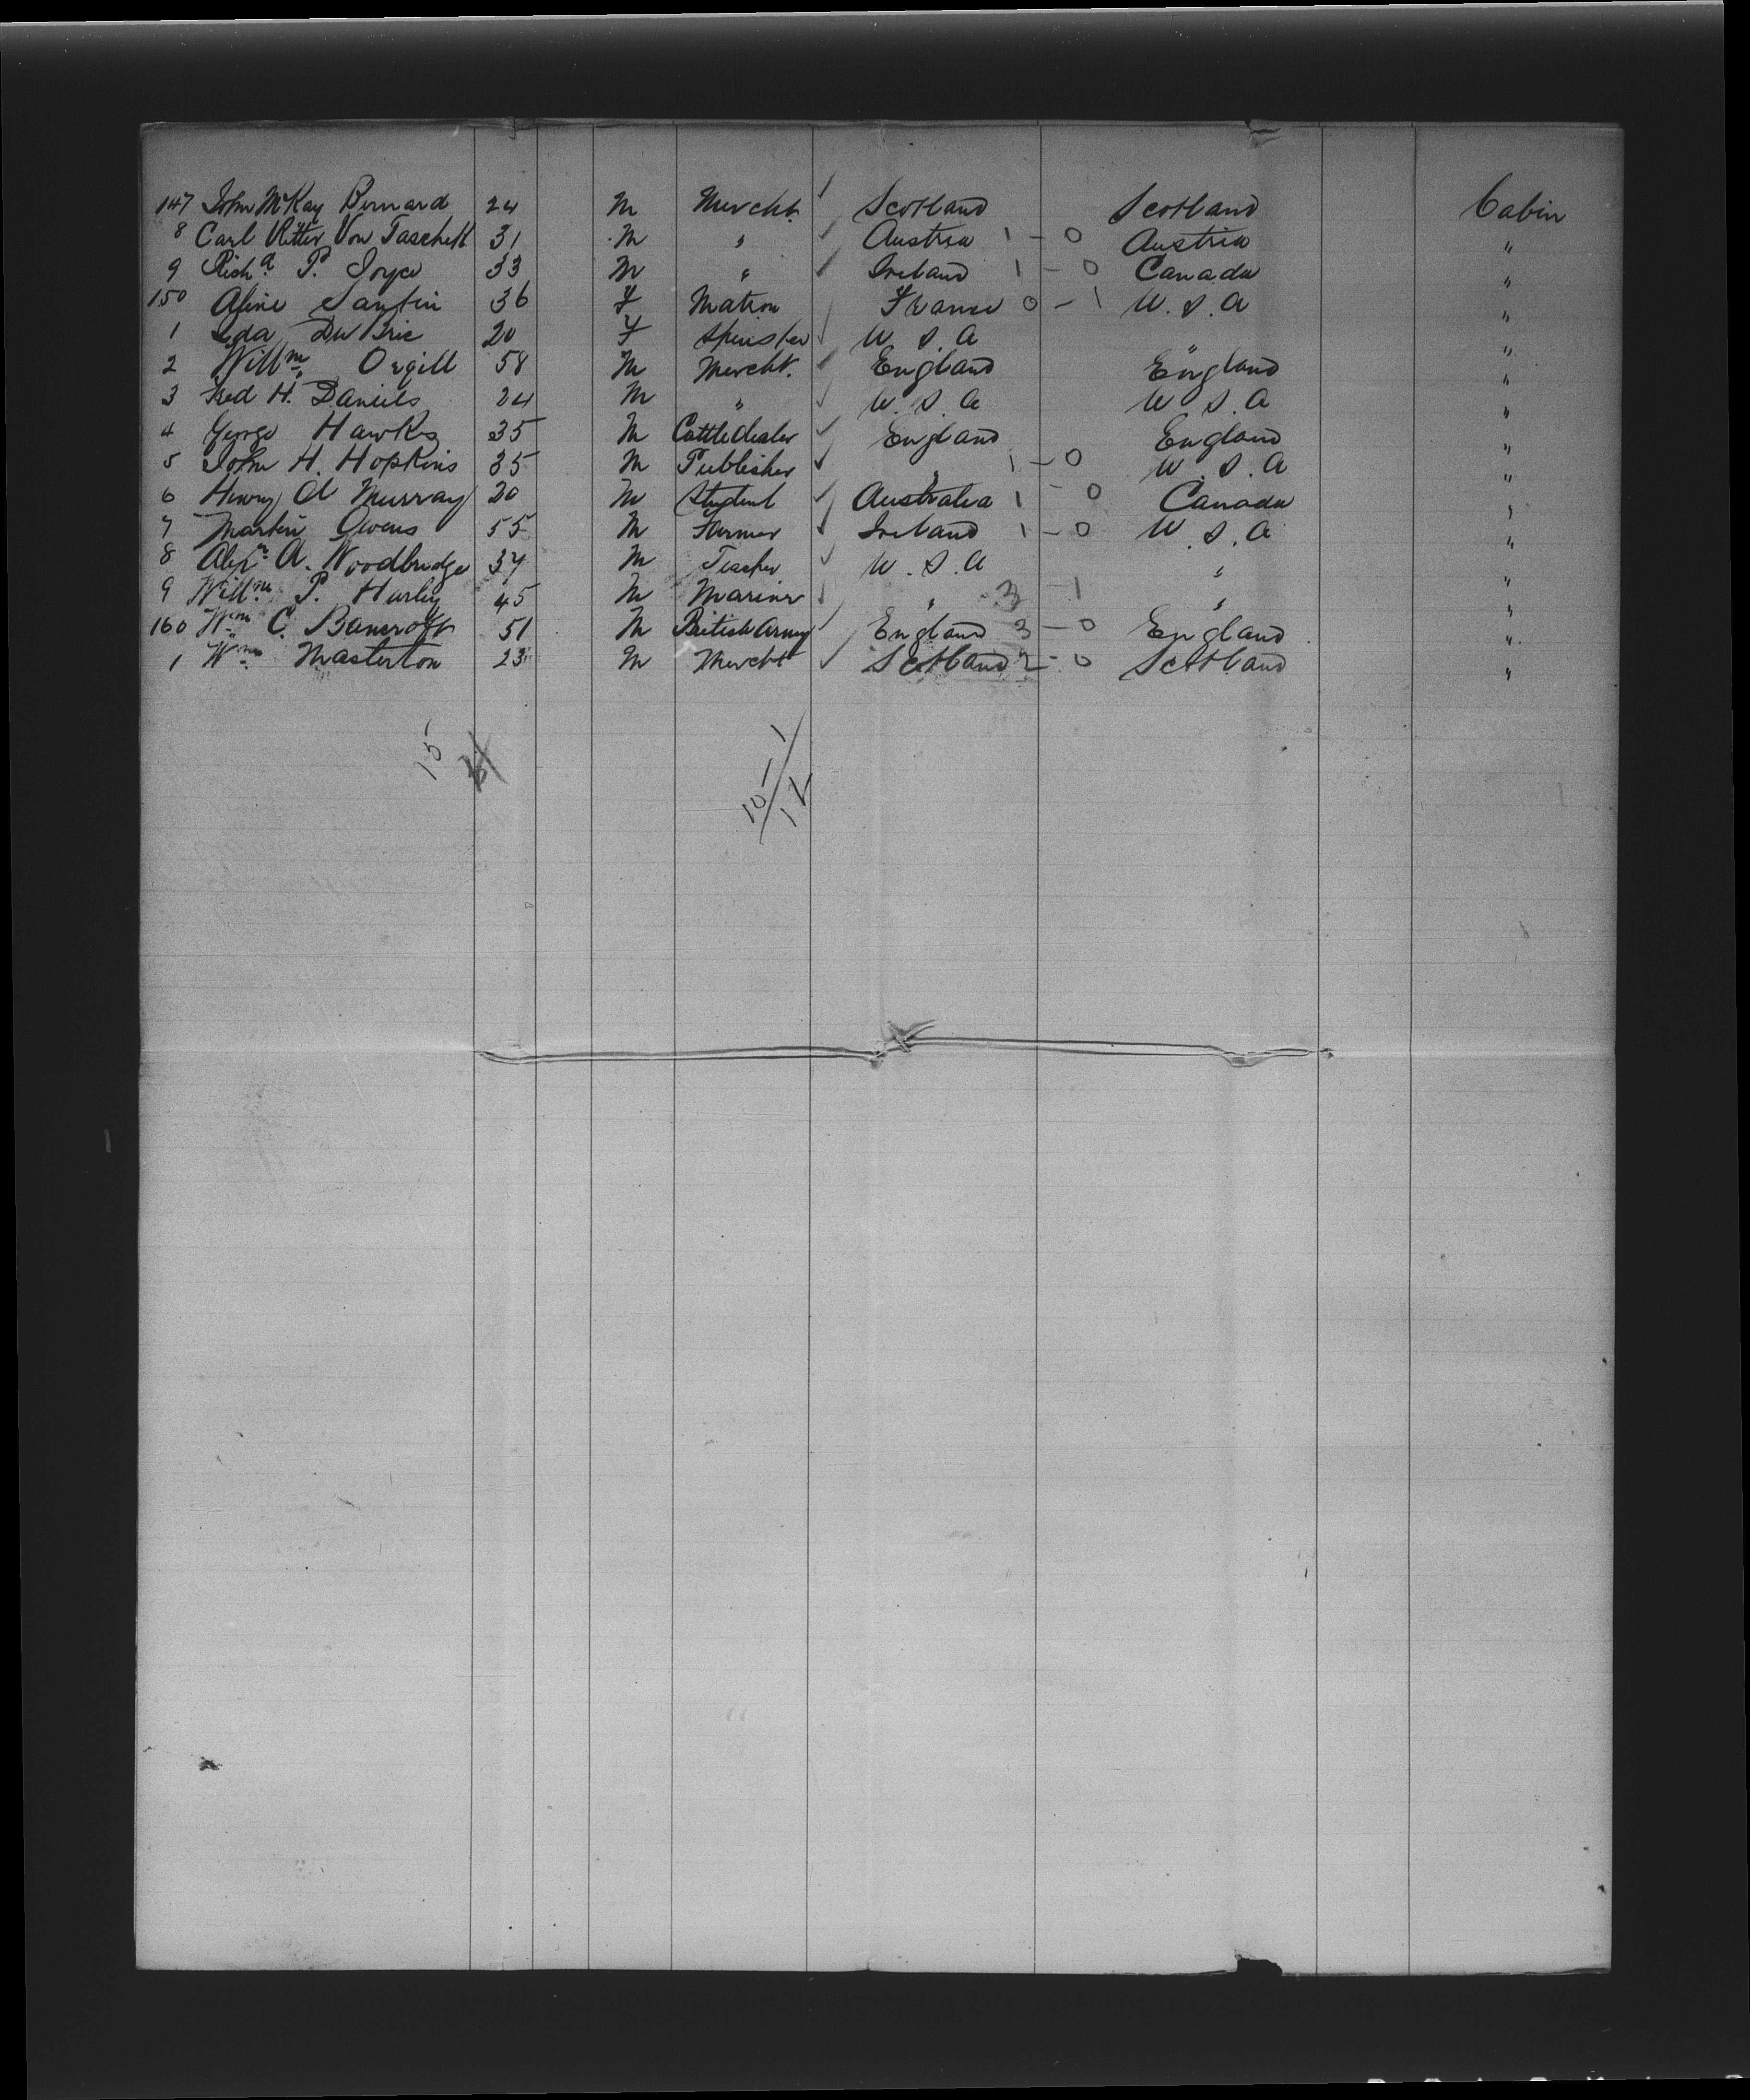 147 John McKay Bernard 24 M Mercht. ✓ Scotland Scotland Cabin
8 Carl Ritter Von Taschett 31 M " ✓ Austria 1 - 0 Austria "
9 Richd. P. Joyce 33 M " ✓ Ireland 1 - 0 Canada "
150 Aline 36 F Matron France 0 - 1 U.S.A "
1 Ida Du Brie 20 F Spinster ✓ U.S.A " "
2 Willm. Orgill 58 M Mercht. ✓ England England "
3 Fred H. Daniels 24 M " ✓ U.S.A U.S.A "
4 George Hawks 35 M Cattledealer ✓ England England "
5 John H. Hopkins 35 M Publisher ✓ " 1 - 0 U.S.A "
6 Henry A Murray 20 M Student ✓ Australia 1 - 0 Canada "
7 Martin Owens 55 M Farmer ✓ Ireland 1 - 0 U.S.A "
8 A. Woodbridge 37 M Teacher ✓ U.S.A " "
9 Willm. P. Hurley 45 M Marinr ✓ " 3 - 1 " "
160 Wm. C. Bancroft 51 M British Army ✓ England 3 - 0 England "
1 Wm. Masterton 23 M Mercht ✓ Scotland 2 - 0 Scotland "
15
10 - 1
12